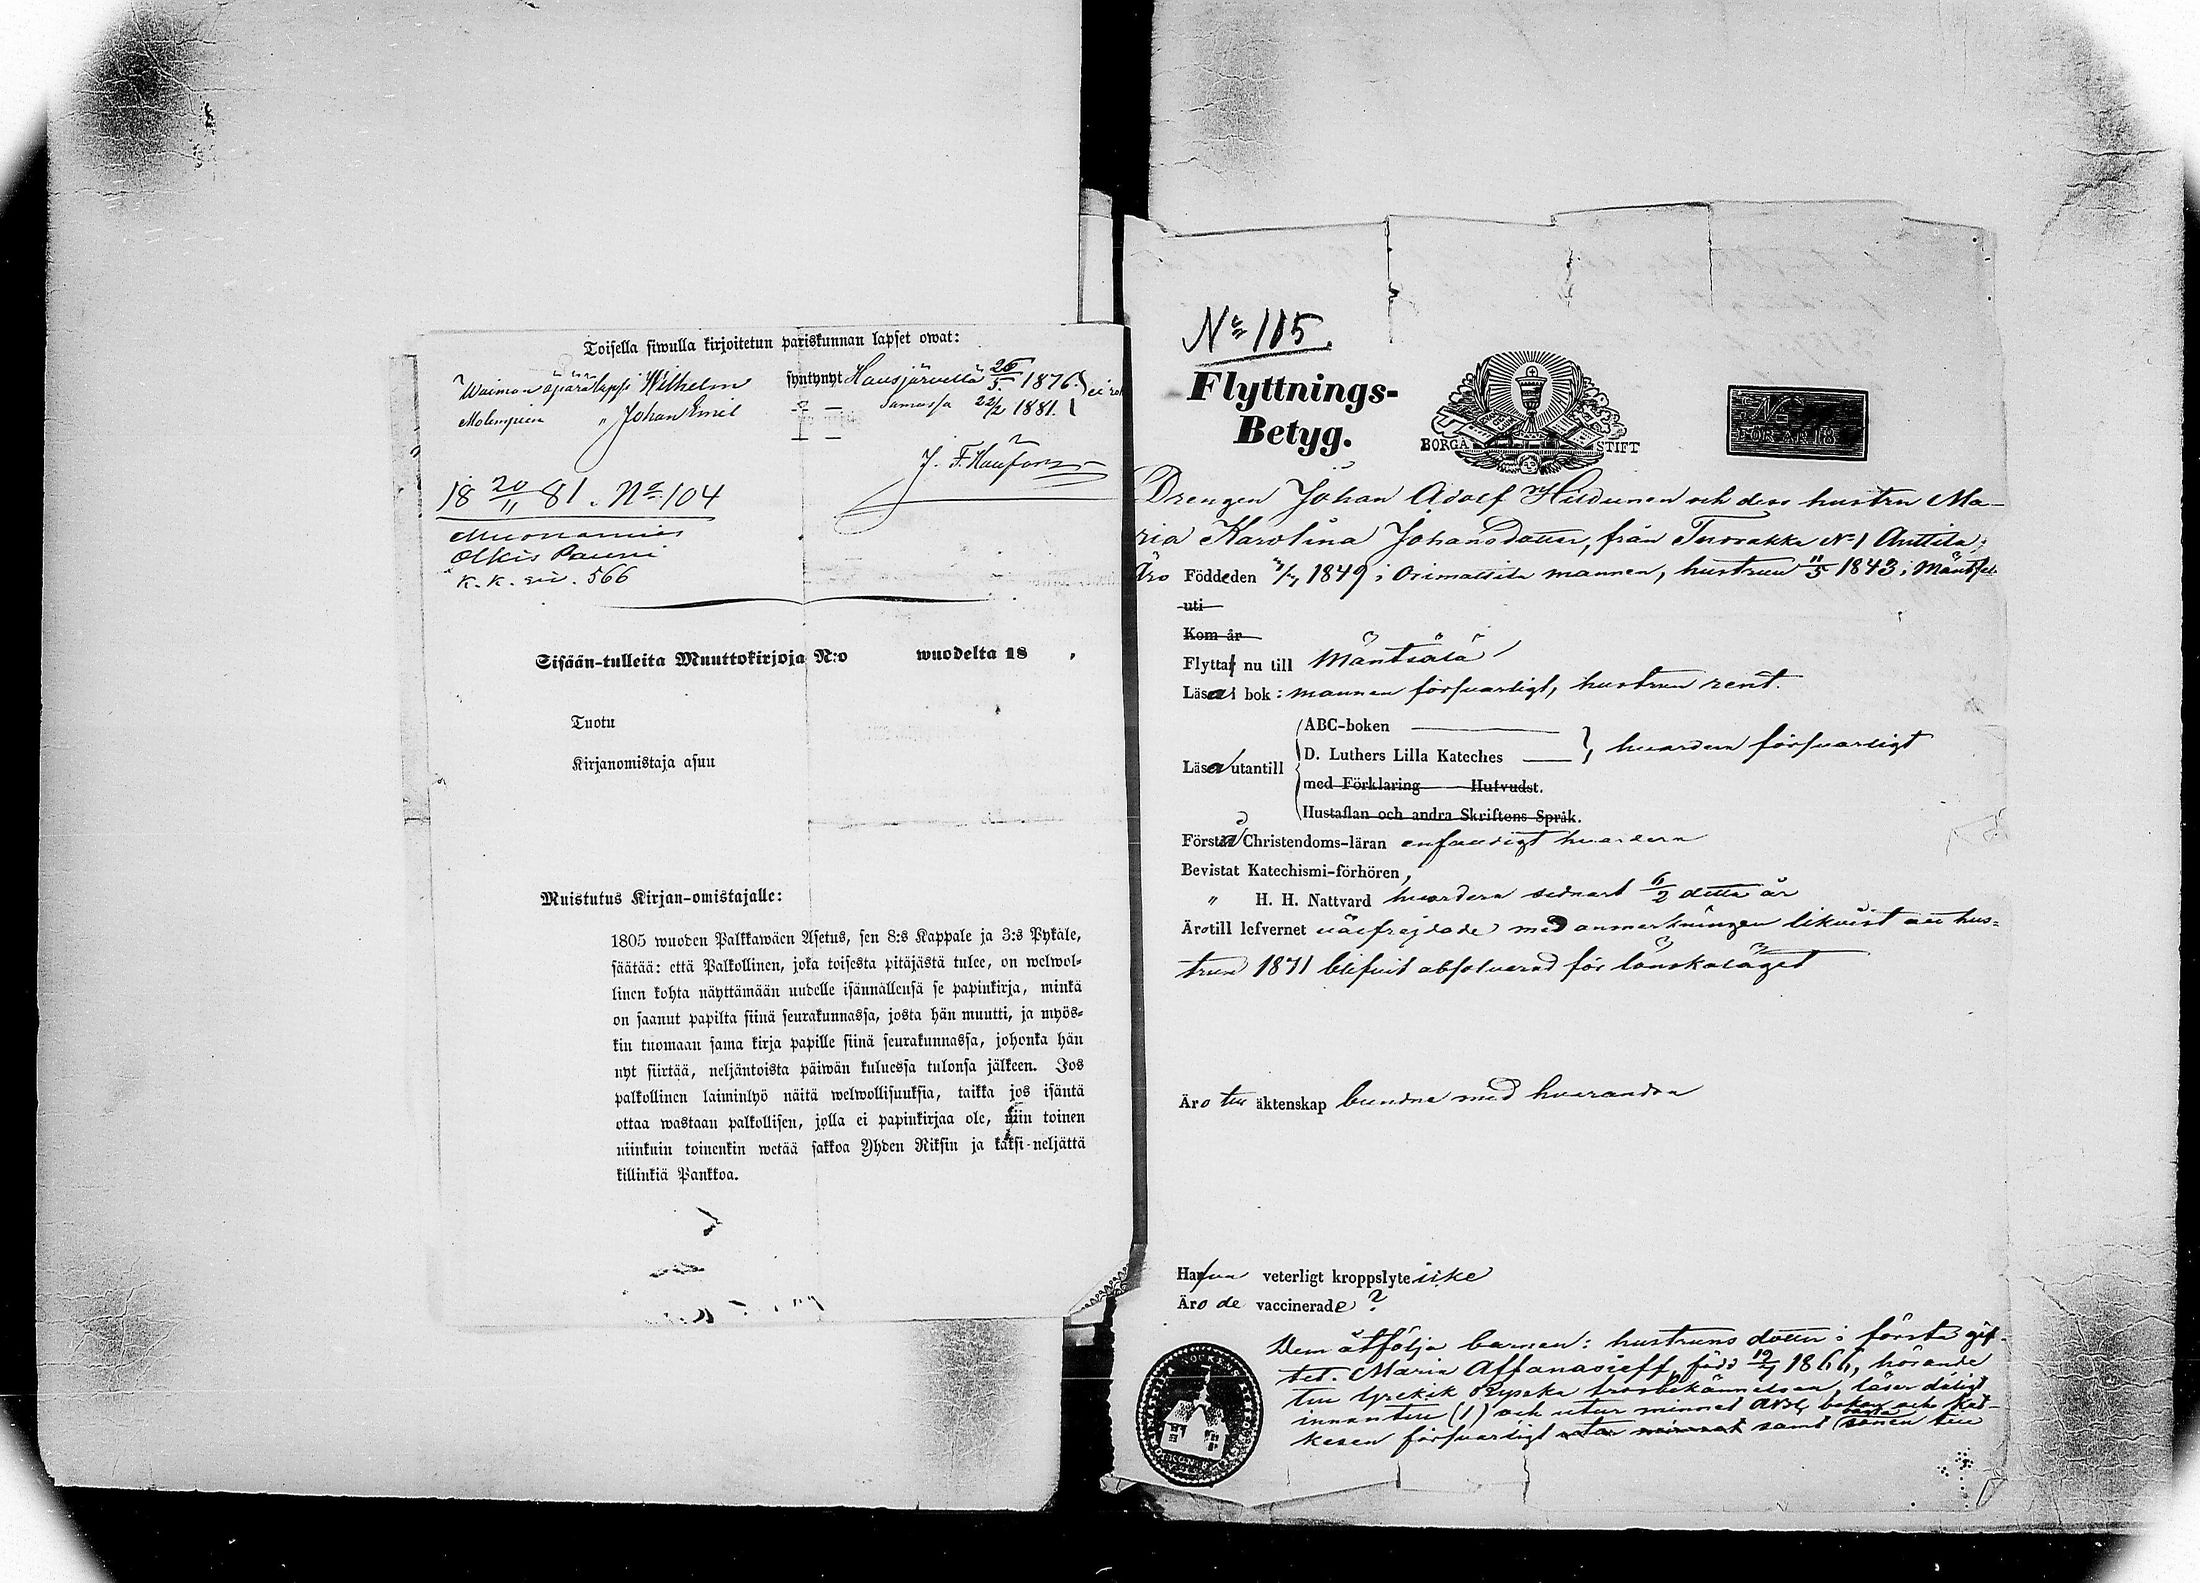 Toisella siwulla kirjoitetun pariskunnan lapset owat:
Waimon äpärälapsi Wilhelm syntynyt Hausjärvellä 26/5 1876.
Molempien " Johan Emil Samassa 22/2 1881.
18 20/11 81. No 104
K. K. siv. 566
Sisään-tulleita Muuttokirjoja N:o wuodelta 18 .
Tuotu
Kirjanomistaja asuu
Muistutus Kirjan-omistajalle:
1805 wuoden Palkkawäen Asetus, sen 8:s Kappale ja 3:s Pykäle,
säätää: että Palkollinen, joka toisesta pitäjästä tulee, on welwol-
linen kohta näyttämään uudelle isännällensä se papinkirja, minkä
on saanut papilta siinä seurakunnassa, josta hän muutti, ja myös-
kin tuomaan sama kirja papille siinä seurakunnassa, johonka hän
nyt siirtää, neljäntoista päiwän kuluessa tulonsa jälkeen. Jos
palkollinen laiminlyö näitä welwollisuuksia, taikka jos isäntä
ottaa wastaan palkollisen, jolla ei papinkirjaa ole, niin toinen
niinkuin toinenkin wetää sakkoa Yhden Riksin ja kaksi-neljättä
killinkiä Pankkoa.
No 115.
Flyttnings-
Betyg.
BORGÅ STIFT
No
FÖR ÅR 18
Drengen Johan Adolf Hidunen och dess hustru Ma-
ria Karolina Johansdotter, från Tuorakka No 1 Anttila;
Äro Födde den 1849 i Orimattila mannen, hustrun 11/5 1843 i Mäntsä
uti
Kom år
Flytta nu till Mäntsälä
Läsa i bok: mannen försvarligt, hustrun rent.
ABC-boken
D. Luthers Lilla Kateches
Läsa utantill } hvardera försvarligt
med Förklaring Hufvudst.
Hustaflan och andra Skriftens Språk.
Förstå Christendoms-läran enfaldigt hvardera
Bevistat Katechismi-förhören,
" H. H. Nattvard hvardera sednast 6/2 detta år
Äro till lefvernet väl frejdade med anmerkningen likväl att hus-
trun 1871 blifvit absolverad för lönskaläget
Äro till äktenskap bundne med hvarandra
Hafva veterligt kroppslyte icke
Äro de vaccinerade ?
Dem åtfölja barnen: hustruns dotter i första gif-
tet. Maria Affanasieff, född 19/7 1866, hörande
till Grekisk Ryska trosbekännelsen, läser dåligt
innantill (1) och utur minnet ABC boken och Kat-
kesen försvarligt utur minnet samt sonen till